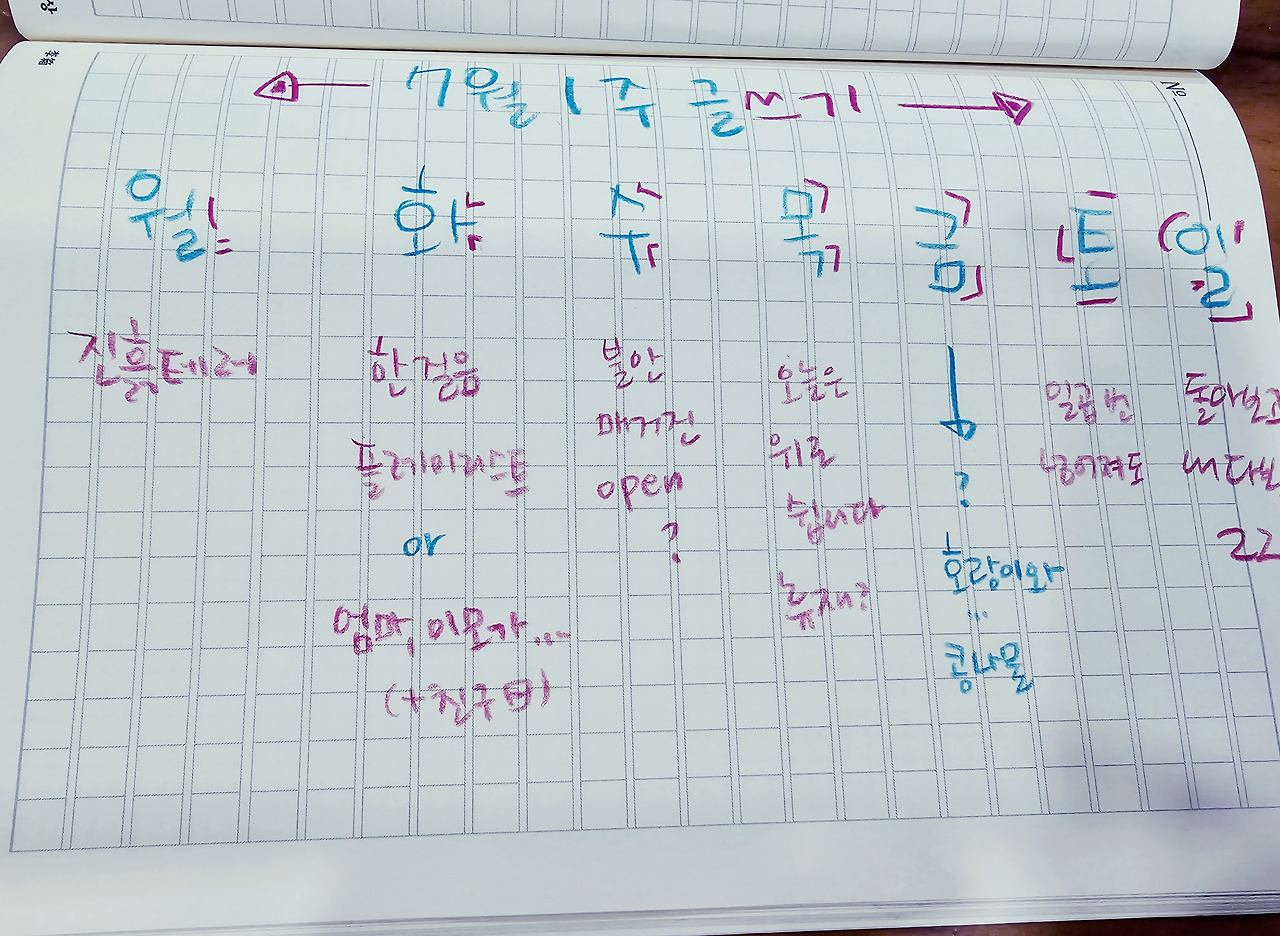 7월 1주 글쓰기
No
월 화 수 목 금 토 일
진흙테레
한걸음
플레이리스트
or
엄마, 이모가...
(+친구 BB)
불안
매거진
open
?
오늘은
위로
쉽니다
휴재?
?
호랑이와
...
콩나물
일곱 번
넘어져도
돌아보고
내다보
22